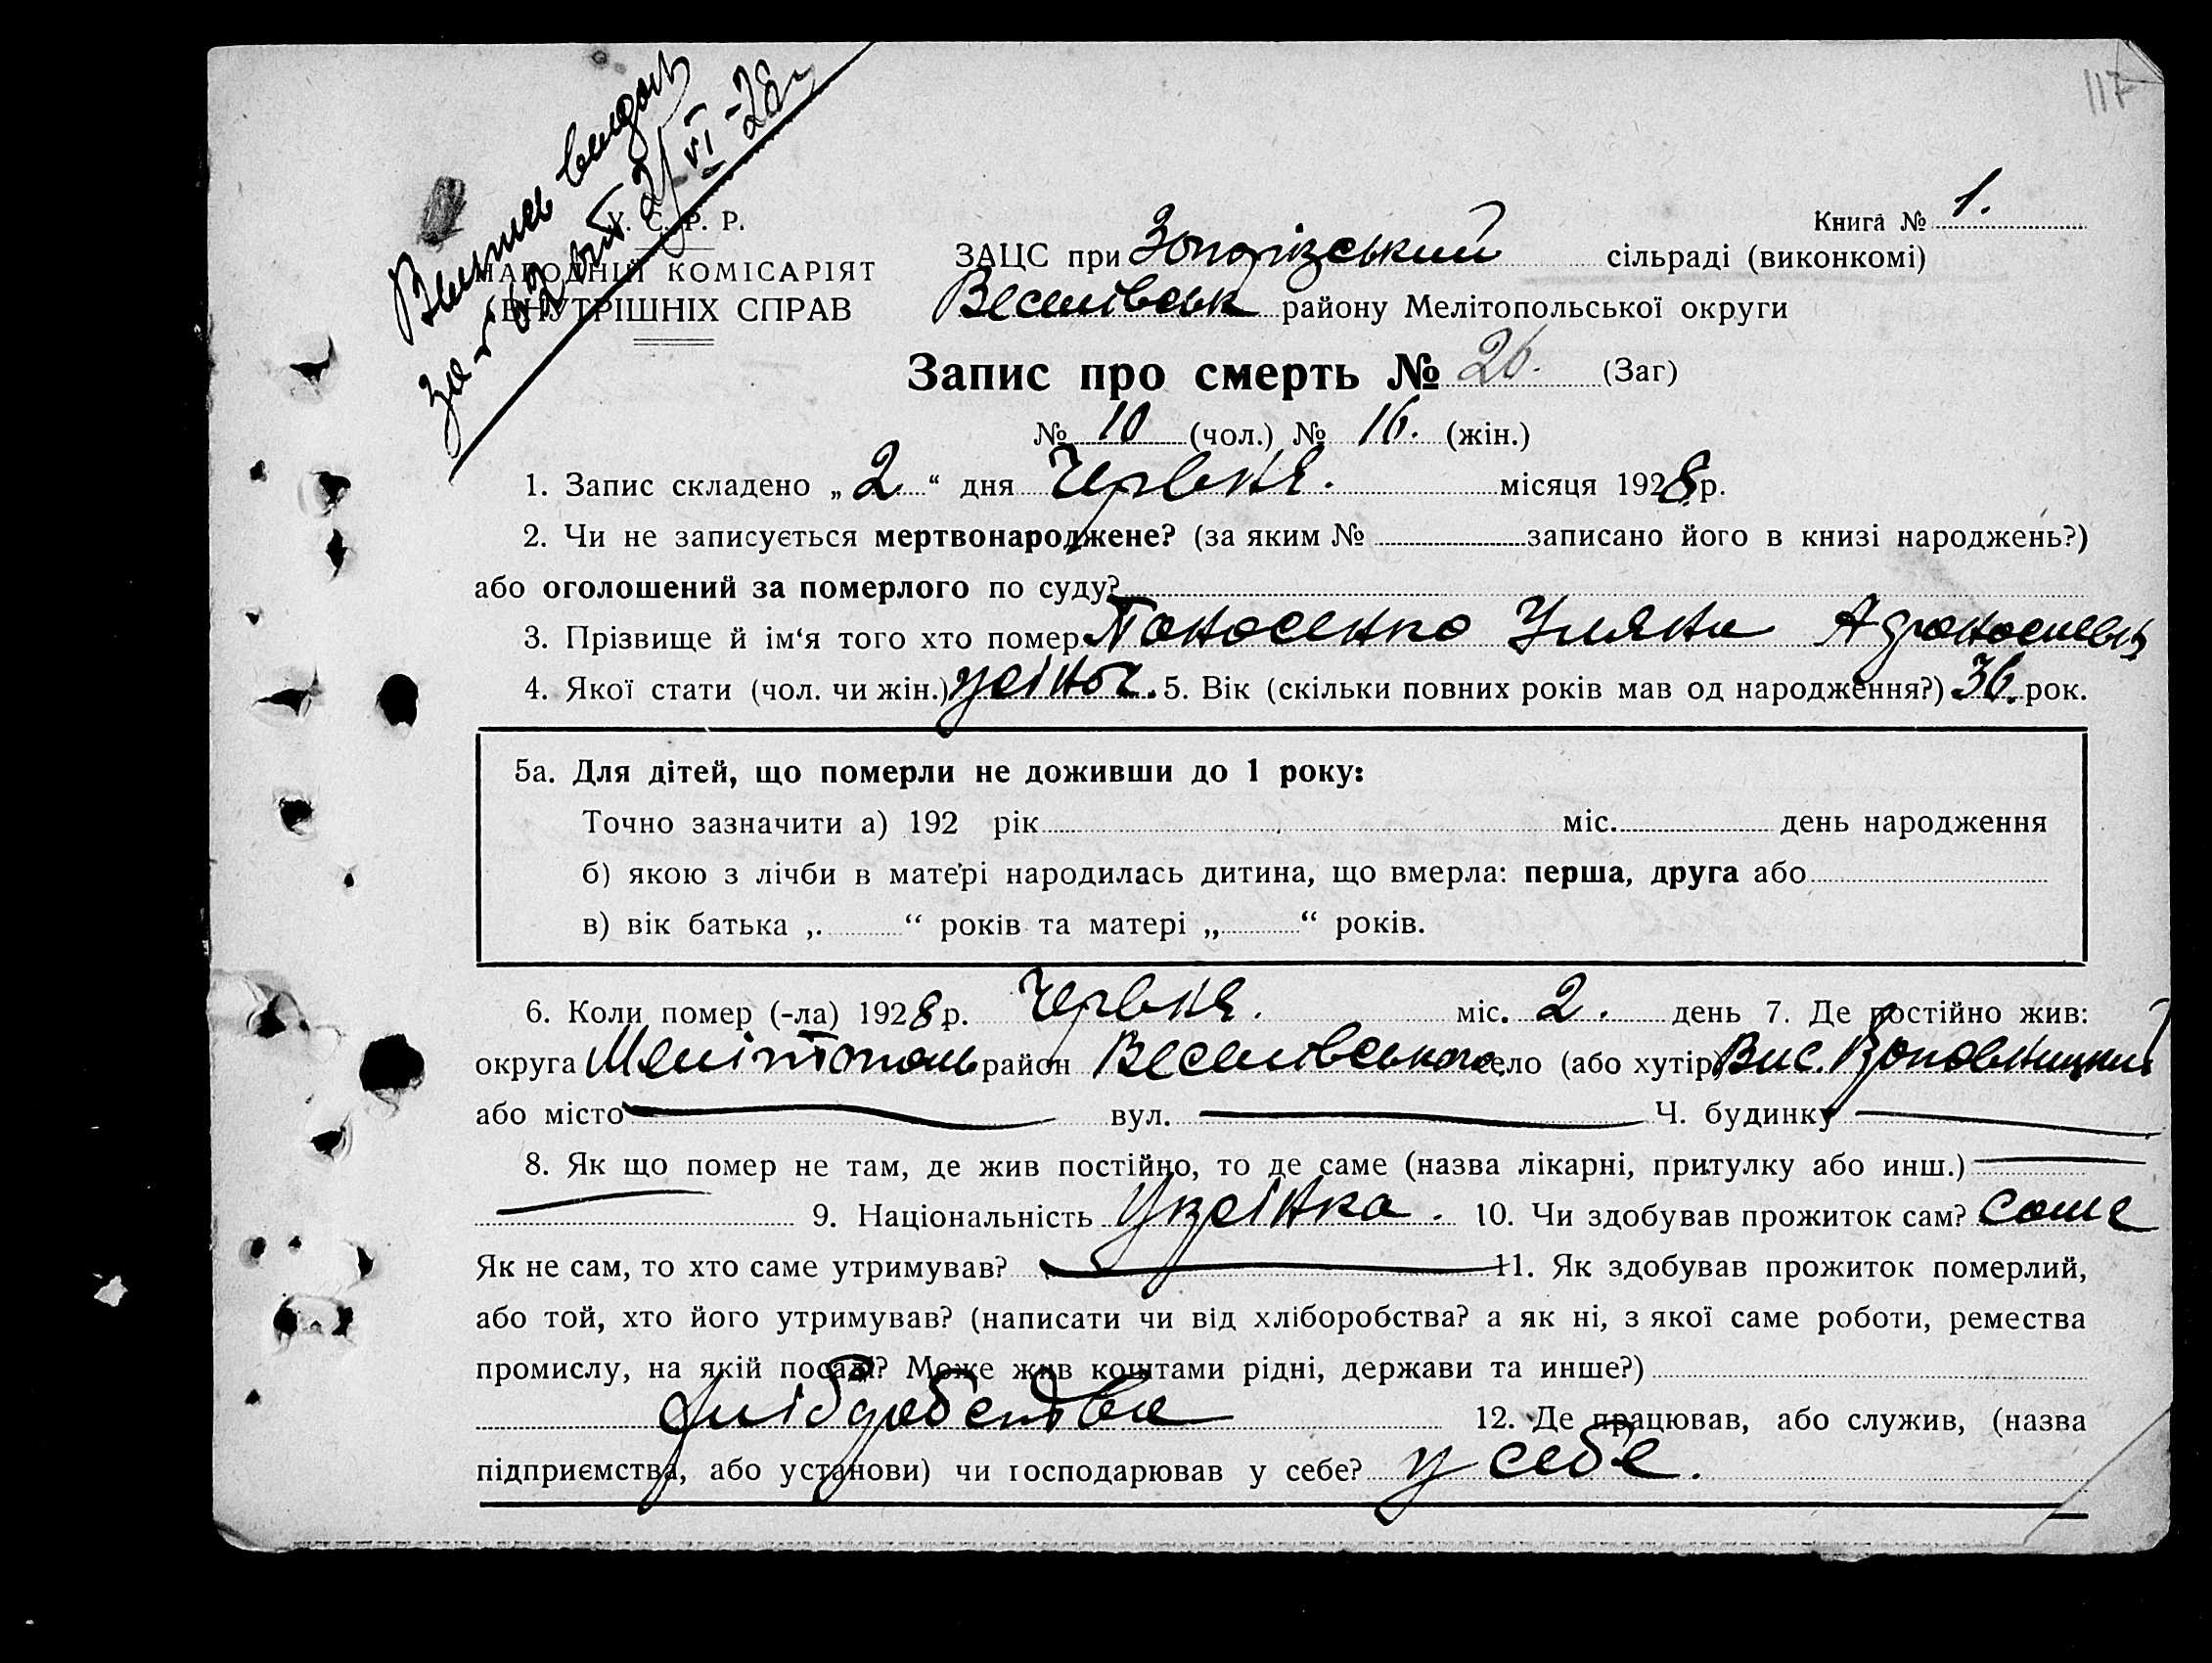 117
Выпись выдан
за № 21/VI-28 г
У. С. Р. Р.
НАРОДНІЙ КОМІСАРІЯТ
ВНУТРІШНІХ СПРАВ
Книга № 1.
ЗАЦС при сільраді (виконкомі)
Веселівськ району Мелітопольської округи
Запис про смерть № 26. (Заг)
№ 10 (чол.) № 16. (жін.)
1. Запис складено „ 2 “ дня Червня. місяця 1928 р.
2. Чи не записується мертвонароджене? (за яким № записано його в книзі народжень?)
або оголошений за померлого по суду?
3. Прізвище й ім‘я того хто помер Панасенко Уляна
4. Якої стати (чол. чи жін.) 5. Вік (скільки повних років мав од народження?) 36. рок.
5а. Для дітей, що померли не доживши до 1 року:
Точно зазначити а) 192 рік міс. день народження
б) якою з лічби в матері народилась дитина, що вмерла: перша, друга або
в) вік батька „ “ років та матері „ “ років.
6. Коли помер (-ла) 1928 р. Червня. міс. 2. день 7. Де постійно жив:
округа Мелітополь район Веселівського село (або хутір) Вис.
або місто вул. Ч. будинку
8. Як що помер не там, де жив постійно, то де саме (назва лікарні, притулку або инш.)
9. Національність Украінка. 10. Чи здобував прожиток сам? Сама
Як не сам, то хто саме утримував? 11. Як здобував прожиток померлий,
або той, хто його утримував? (написати чи від хліборобства? а як ні, з якої саме роботи, ремества
промислу, на якій посаді? Може жив коштами рідні, держави та инше?)
12. Де працював, або служив, (назва
підприємства, або установи) чи господарював у себе? у себе.